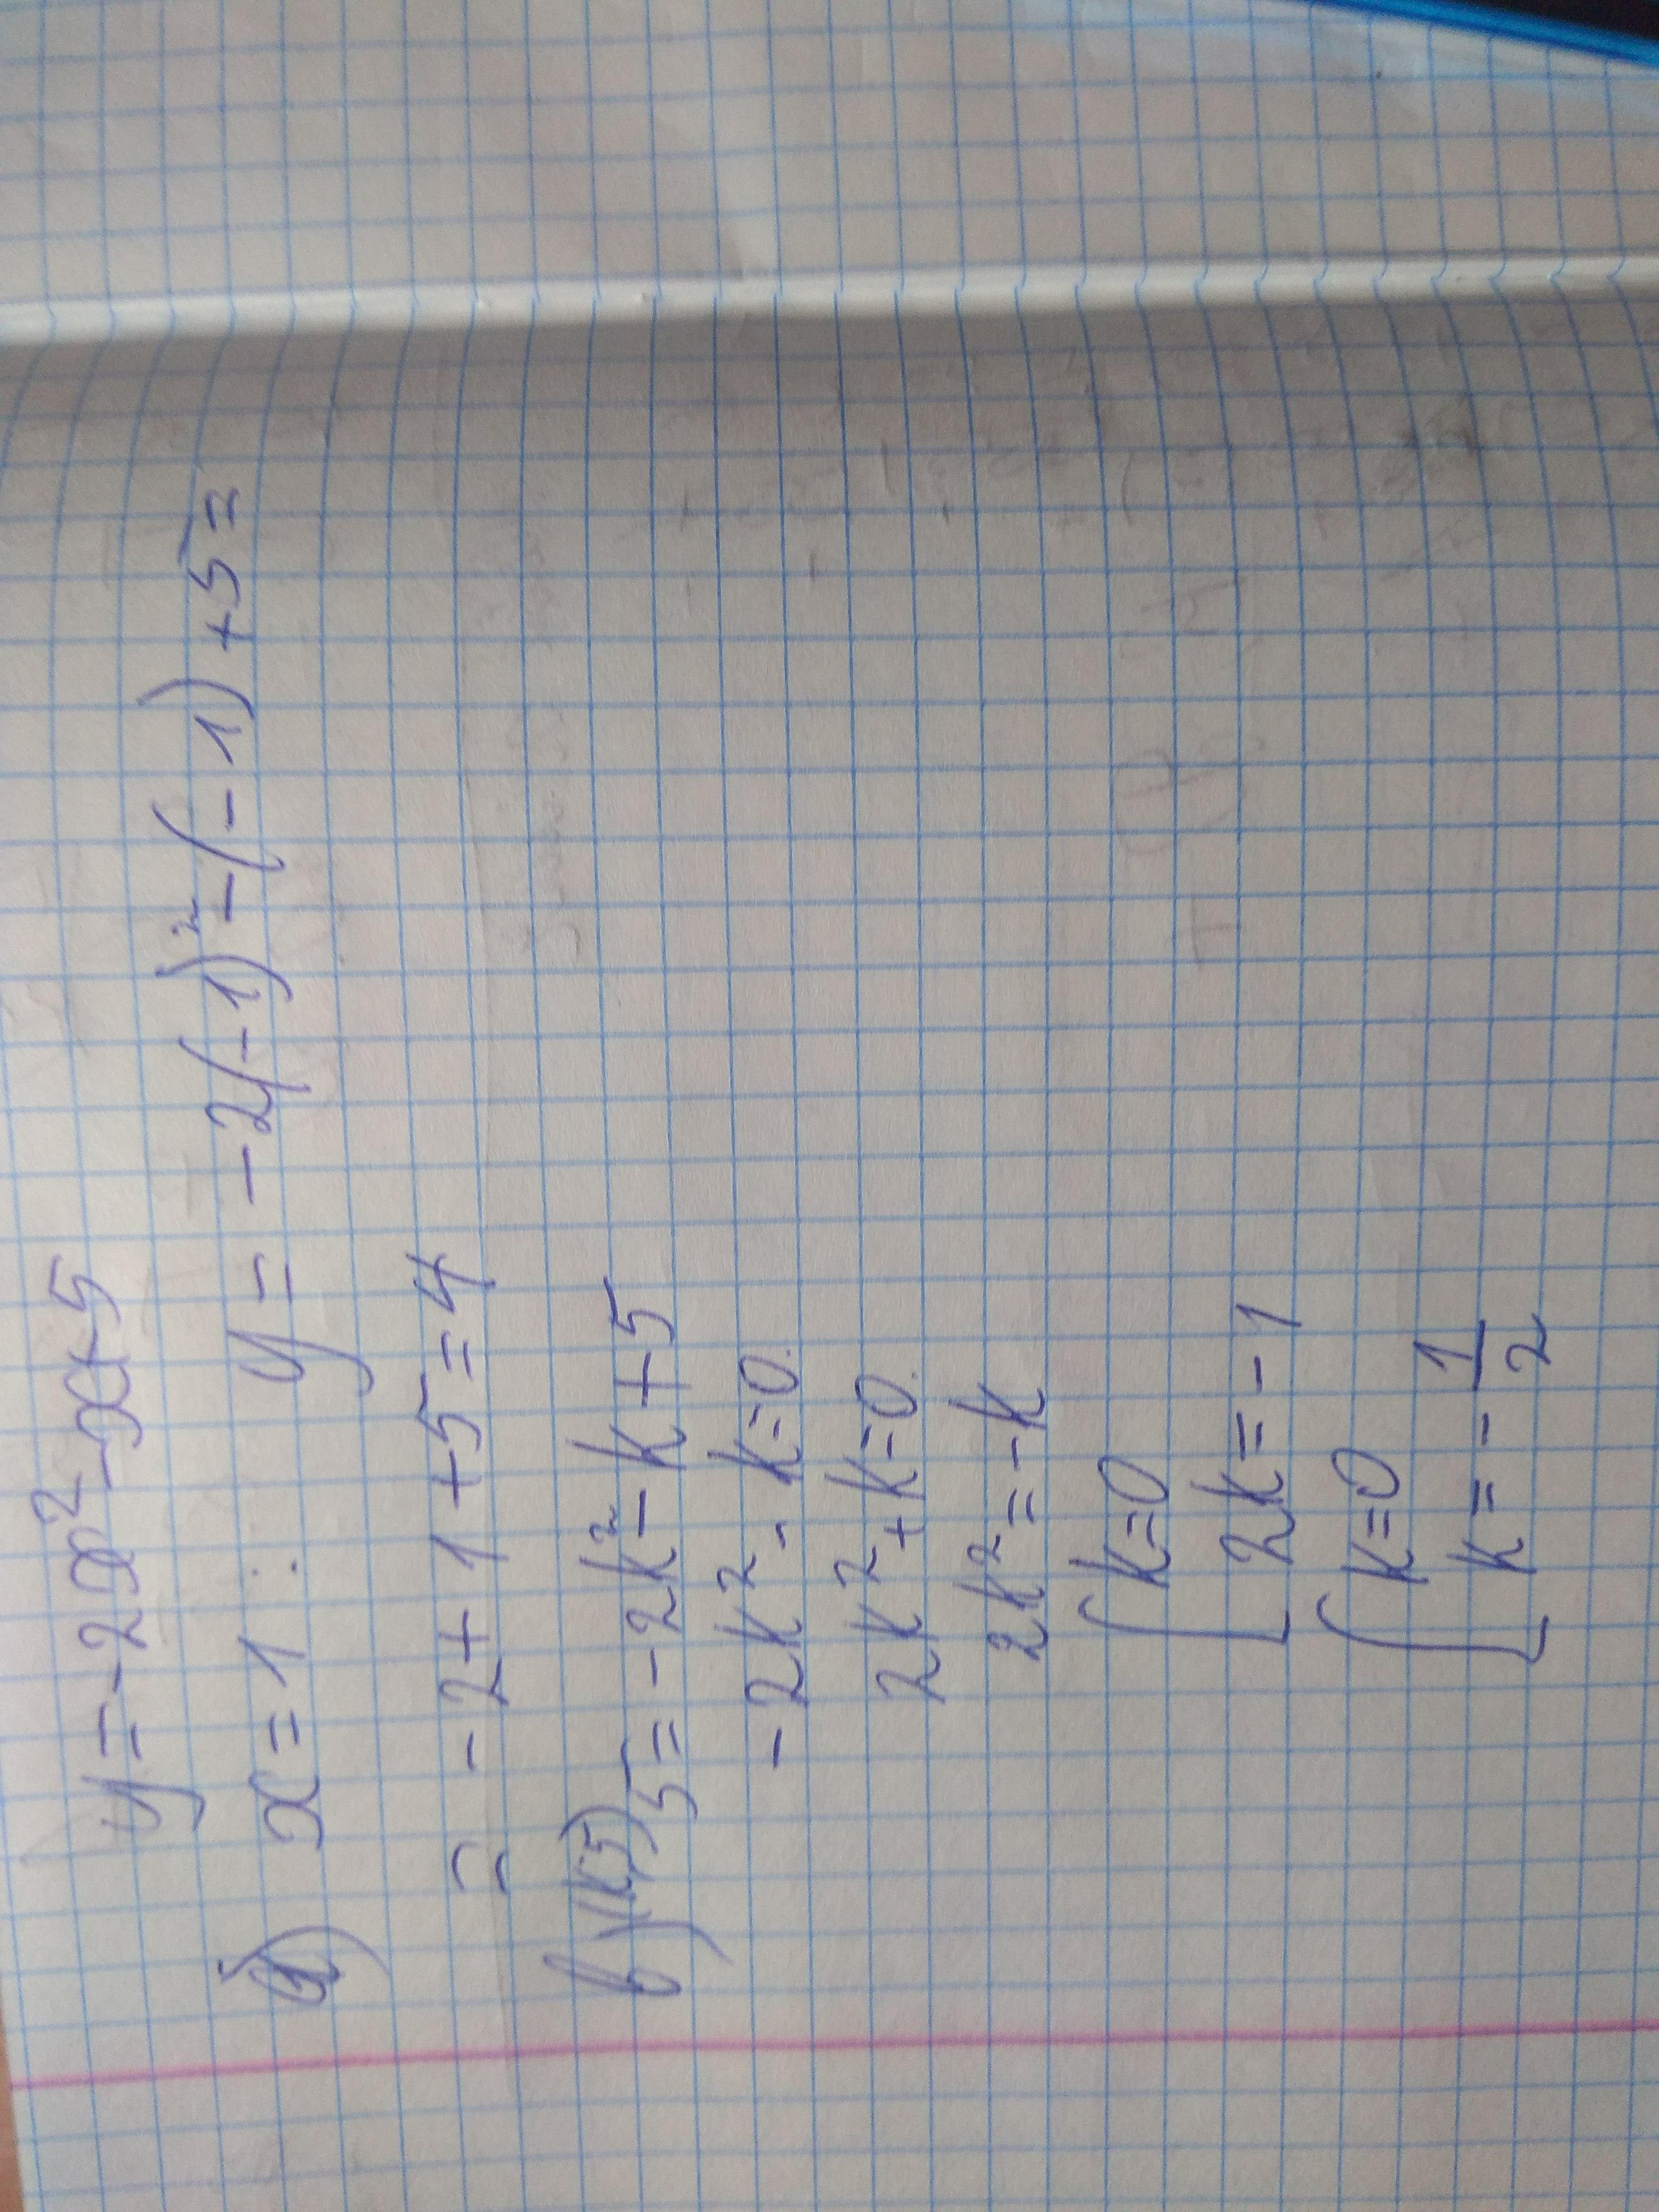 y = -2x² - x + 5
a) x = 1 : y = -2(-1)² - (-1) + 5 =
= -2 + 1 + 5 = 4
в) (k;5) 5 = -2k² - k + 5
-2k² - k = 0
2k² + k = 0
2k² = -k
[ k = 0
2k = -1
[ k = 0
k = - 1/2